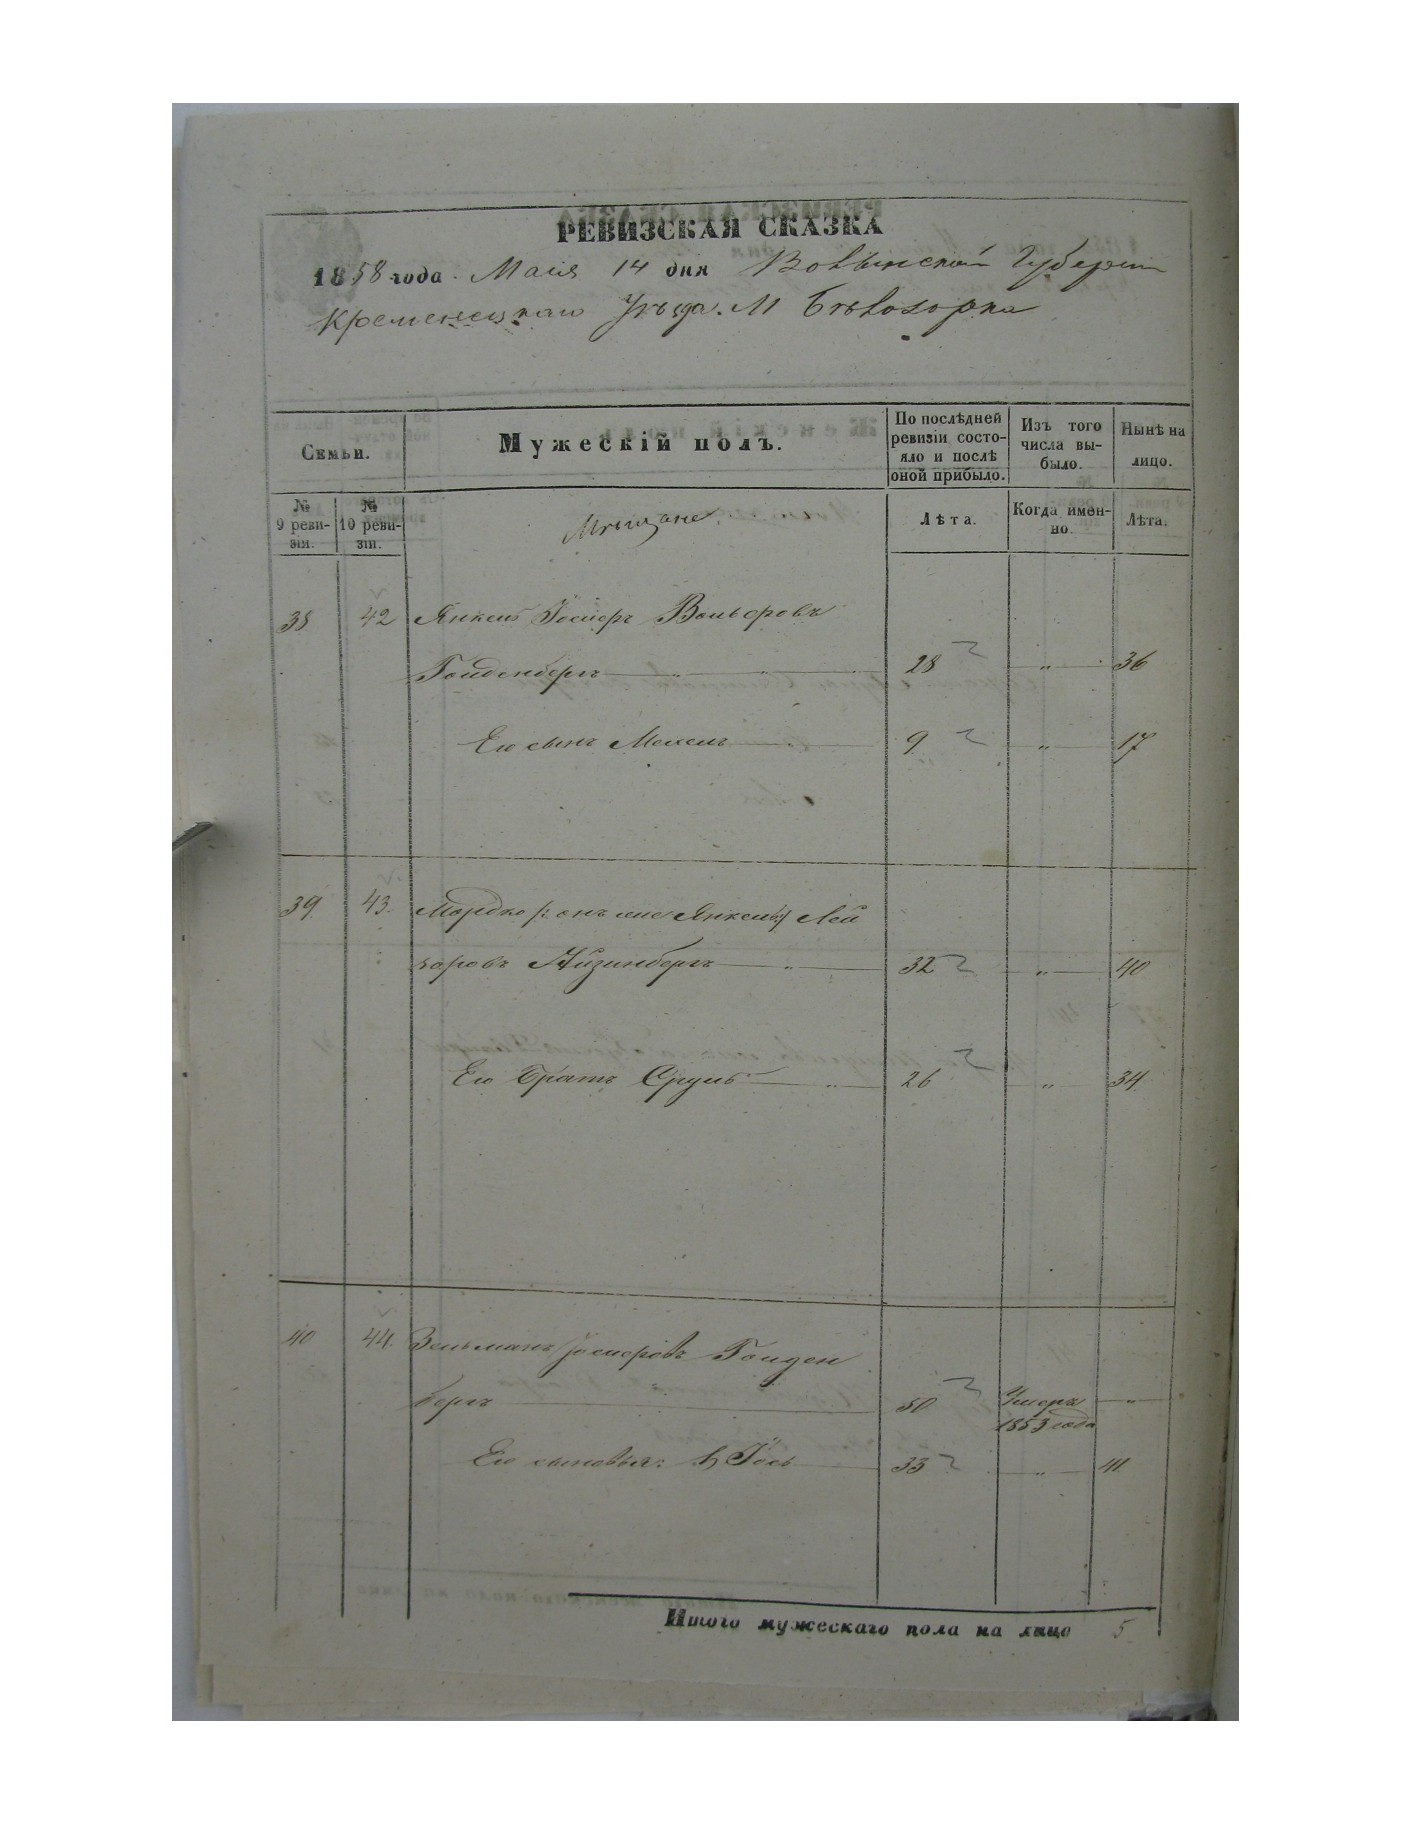 РЕВИЗСКАЯ СКАЗКА
1858 года Мая 14 дня Волынской Губернии
Кременецкаго Уѣзда. М Бѣлозорка
Семьи.
Мужескій полъ.
По послѣдней ревизіи состояло и послѣ оной прибыло.
Изъ того числа выбыло.
Нынѣ на лицо.
№ 9 ревизіи.
№ 10 ревизіи.
Мѣщане
Лѣта.
Когда именно.
Лѣта.
38 42 Янкель Іосифъ Вольфовъ
Гольденбергъ 28 " 36
Его сынъ Мехель 9 " 17
39 43. Мордко /: онъ же Янкель :/ Лей
заровъ Айзинбергъ 32 " 40
Его Братъ Сруль 26 " 34
40 44. Зельманъ Іосифовъ Гольден
бергъ 50 Умеръ 1853 года "
Его сыновья: 1, Іось 33 " 41
Итого мужескаго пола на лицо 5